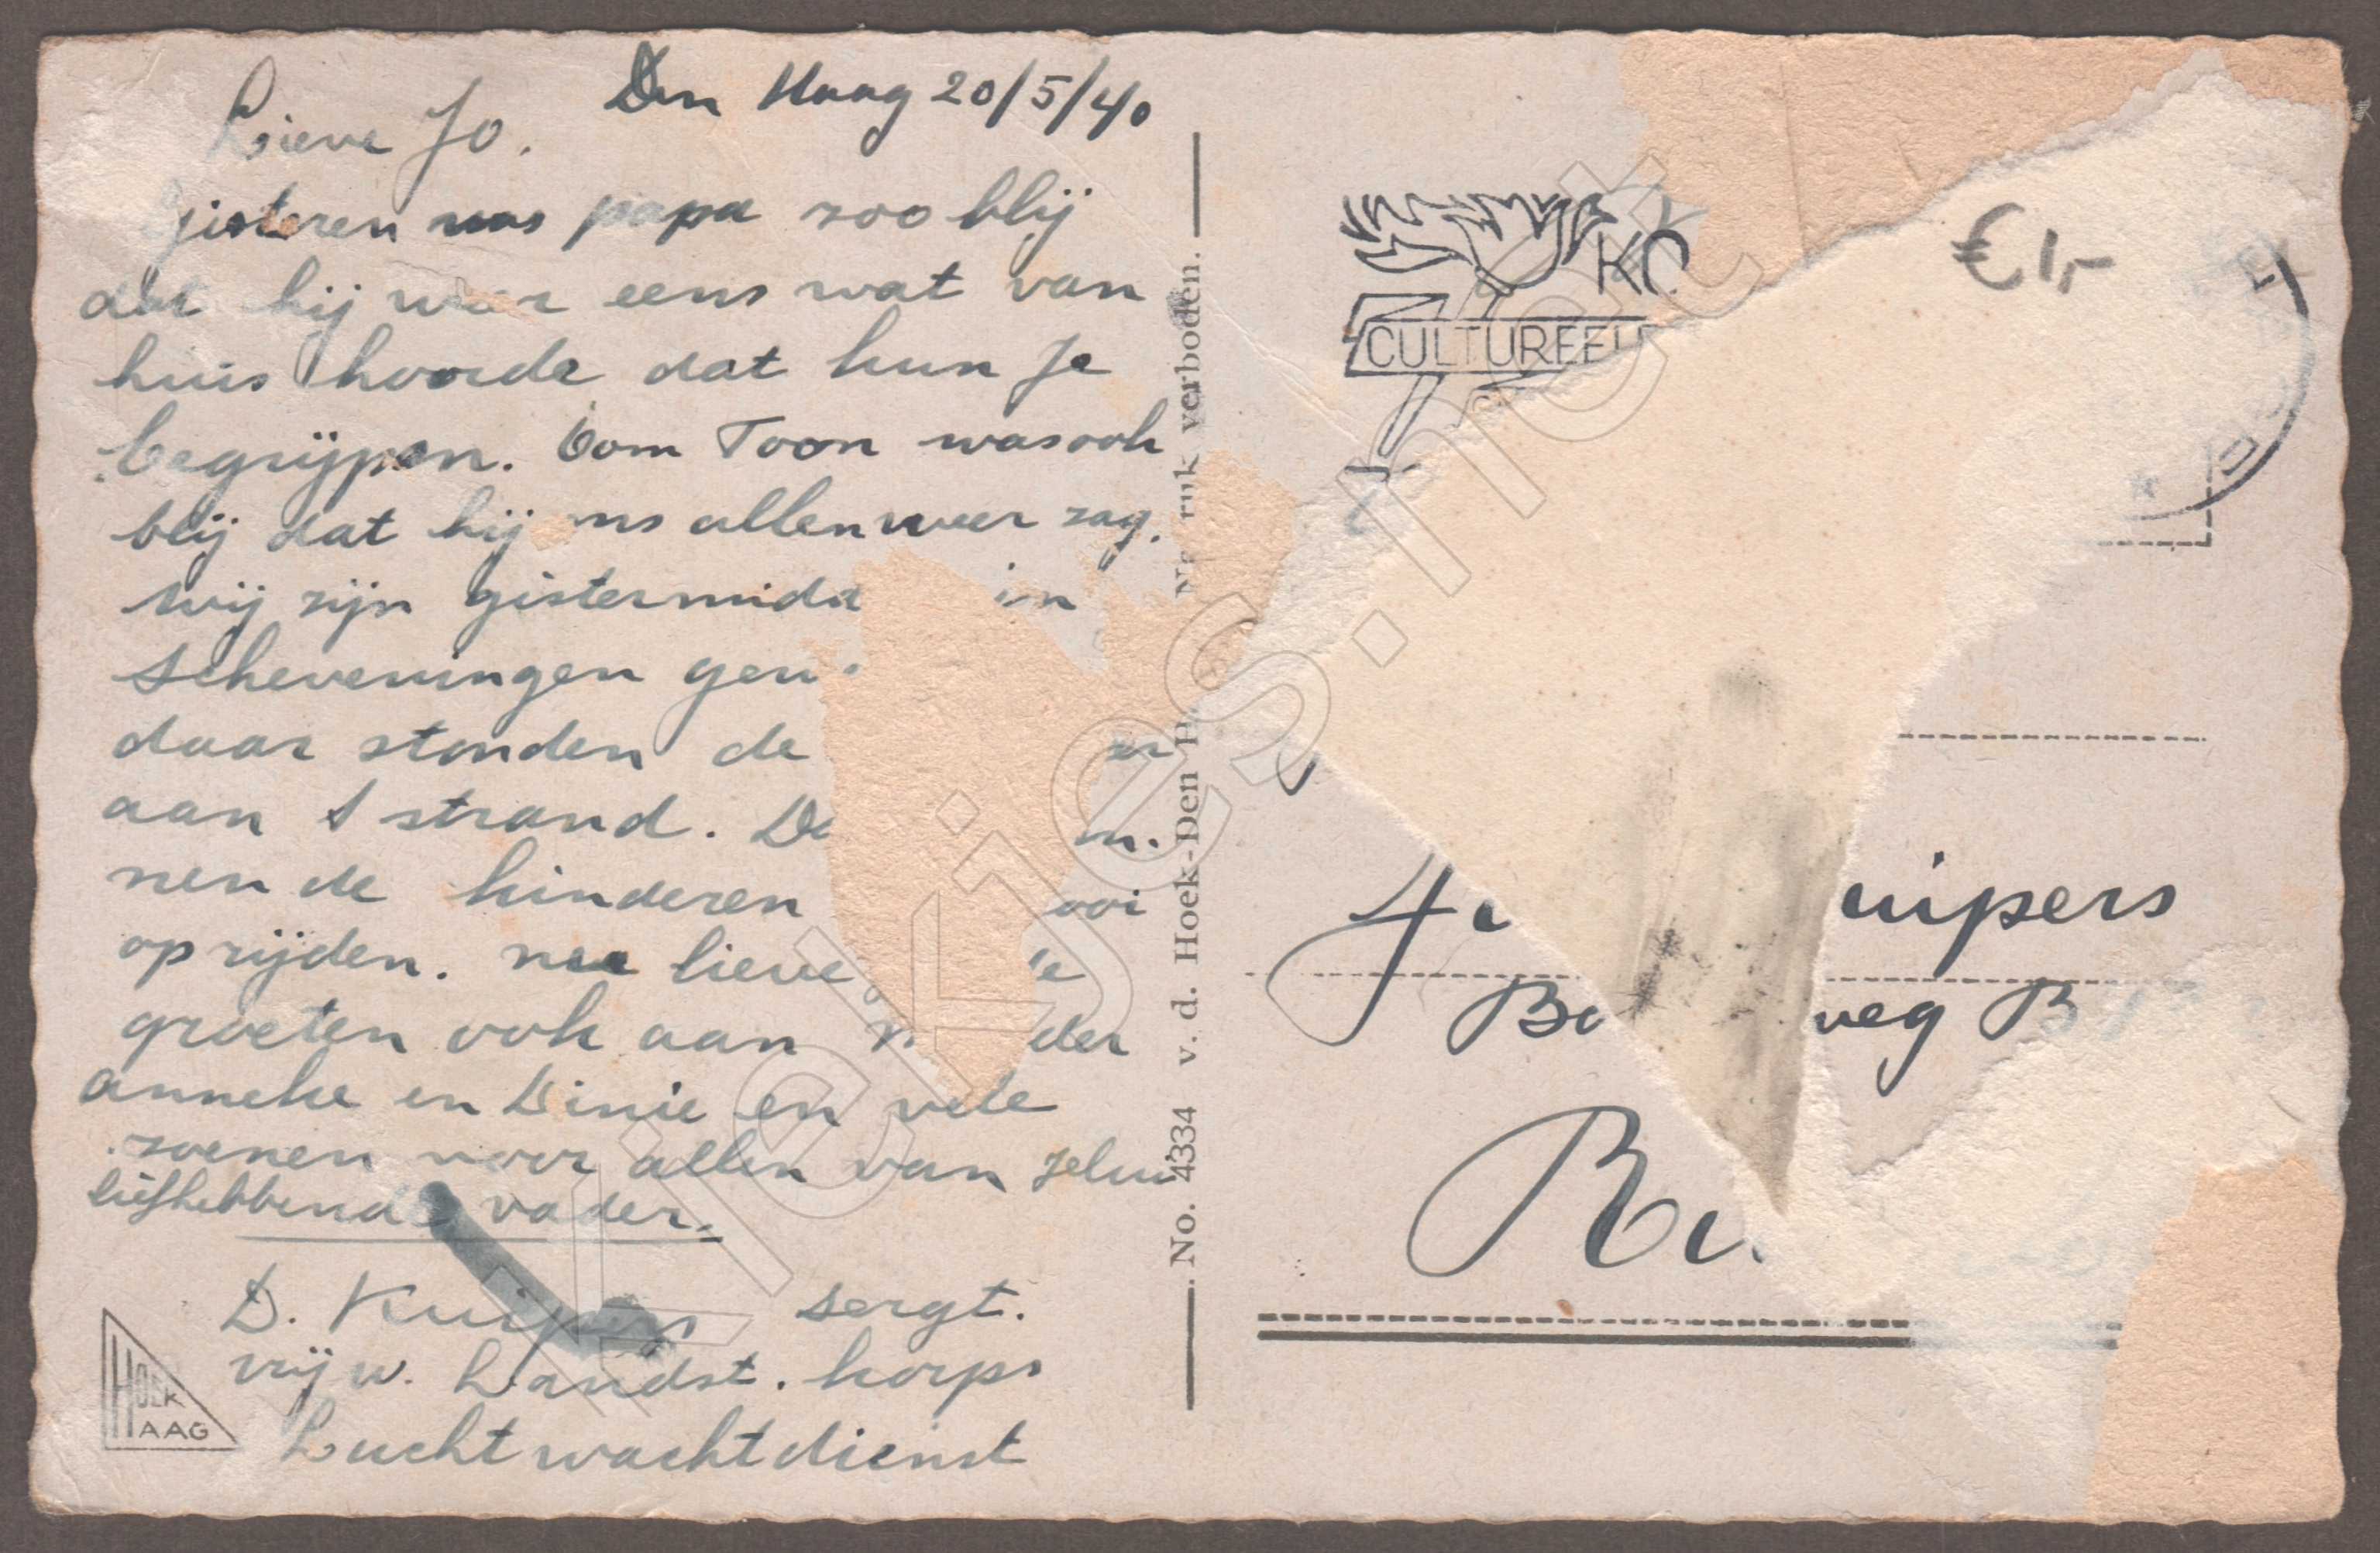 Den Haag 20/5/40
Lieve Jo.
Gisteren was papa zoo blij
dat hij weer eens wat van
huis hoorde dat kun je
begrijpen. Oom Toon was ook
blij dat hij ons allen weer zag.
wij zijn gistermidda in
Scheveningen gew
daar stonden de
aan 't strand. Da
nen de kinderen ooi
op rijden. nu lieve
groeten ook aan der
anneke en Dinie en vele
zoenen voor allen van jelui
liefhebbende vader.
D. Kuipers sergt.
vrijw. Landst. korps
Luchtwachtdienst
HOEK
HAAG
No. 4334 v. d. Hoek-Den H Na ruk verboden.
KO
CULTUREEL
€ 1,-
J uipers
Bo weg B
Ru
Kiekjes.net